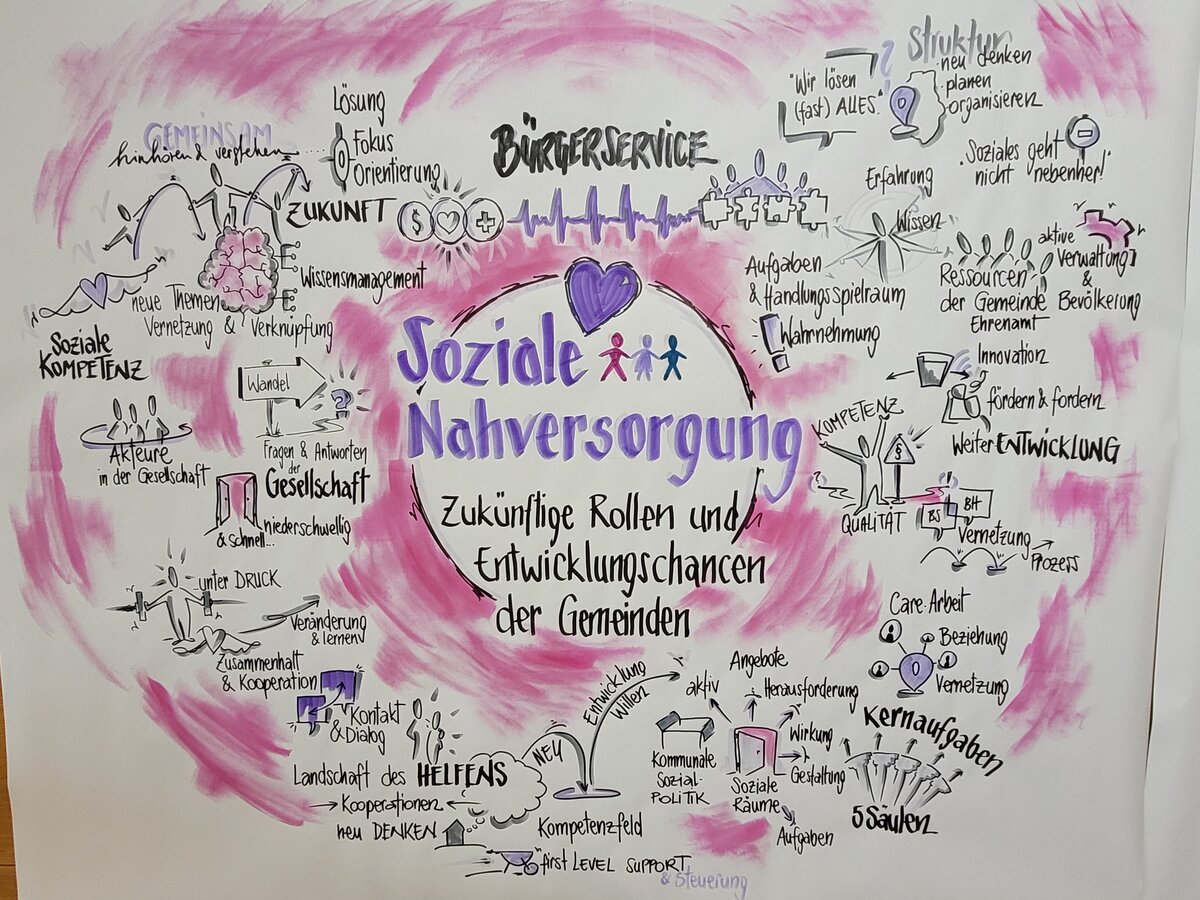 Soziale
Nahversorgung
Zukünftige Rollen und
Entwicklungschancen
der Gemeinden
BÜRGERSERVICE
$
GEMEINSAM
hinhören & verstehen
Lösung
Fokus
Orientierung
ZUKUNFT
Wissensmanagement
neue Themen
Vernetzung & Verknüpfung
Soziale
KOMPETENZ
Wandel
?
Fragen & Antworten
der
Gesellschaft
Akteure
in der Gesellschaft
niederschwellig
& schnell...
unter DRUCK
Veränderung
& lernen
Zusammenhalt
& Kooperation
Kontakt
& Dialog
Landschaft des HELFENS
Kooperationen
neu DENKEN
NEU
Entwicklung
Willen
Kompetenzfeld
first LEVEL SUPPORT
& Steuerung
Struktur
neu denken
planen
organisieren
?
"Wir lösen
(fast) ALLES."
"Soziales geht
nicht nebenher!"
Erfahrung
Wissen
Aufgaben
& Handlungsspielraum
! Wahrnehmung
Ressourcen
der Gemeinde
Ehrenamt
aktive
Verwaltung
&
Bevölkerung
Innovation
fördern & fordern
WeiterENTWICKLUNG
KOMPETENZ
§
?
?
QUALITÄT
BS
BH
Vernetzung
Prozess
Care-Arbeit
Beziehung
Vernetzung
Kernaufgaben
5 Säulen
Angebote
aktiv
Herausforderung
Wirkung
Gestaltung
Kommunale
Sozial-
POLITIK
Soziale
Räume
Aufgaben